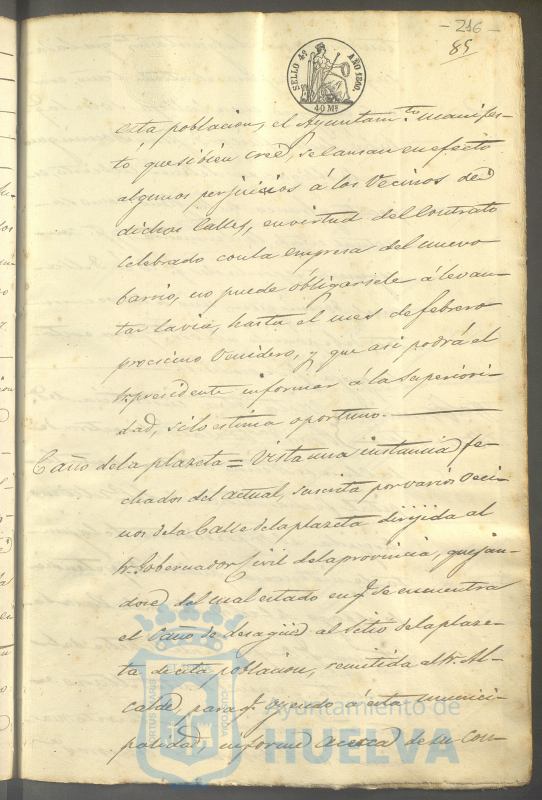 - 216 -
85
SELLO 4º AÑO 1860.
40 Ms
esta poblacion, el Ayuntamto. manifes-
tó que si bien creé, se causan en efecto
algunos perjuicios á los Vecinos de
dichas Calles, en virtud del Contrato
Celebrado con la empresa del nuevo
barrio, no puede óbligarsele á levan-
tar la via, hasta el mes de febrero
procsimo Venidero, y que asi podrá el
Sr. presidente informar á la Superiori-
dad, si lo estima oportuno.
Caño de la plazeta = Vista una instancia fe-
chados del actual, suscrita por varios Veci-
nos de la Calle de la plazeta dirijida al
Sr. Gobernador Civil de la provincia, quejan-
dose del mal estado en q. se encuentra
el Caño de desagüe al Sitio de la plaze-
ta de esta poblacion, remitida al Sr. Al-
calde, para q. oyendo á esta munici-
palidad informe acerca de su con-
Ayuntamiento de
HUELVA